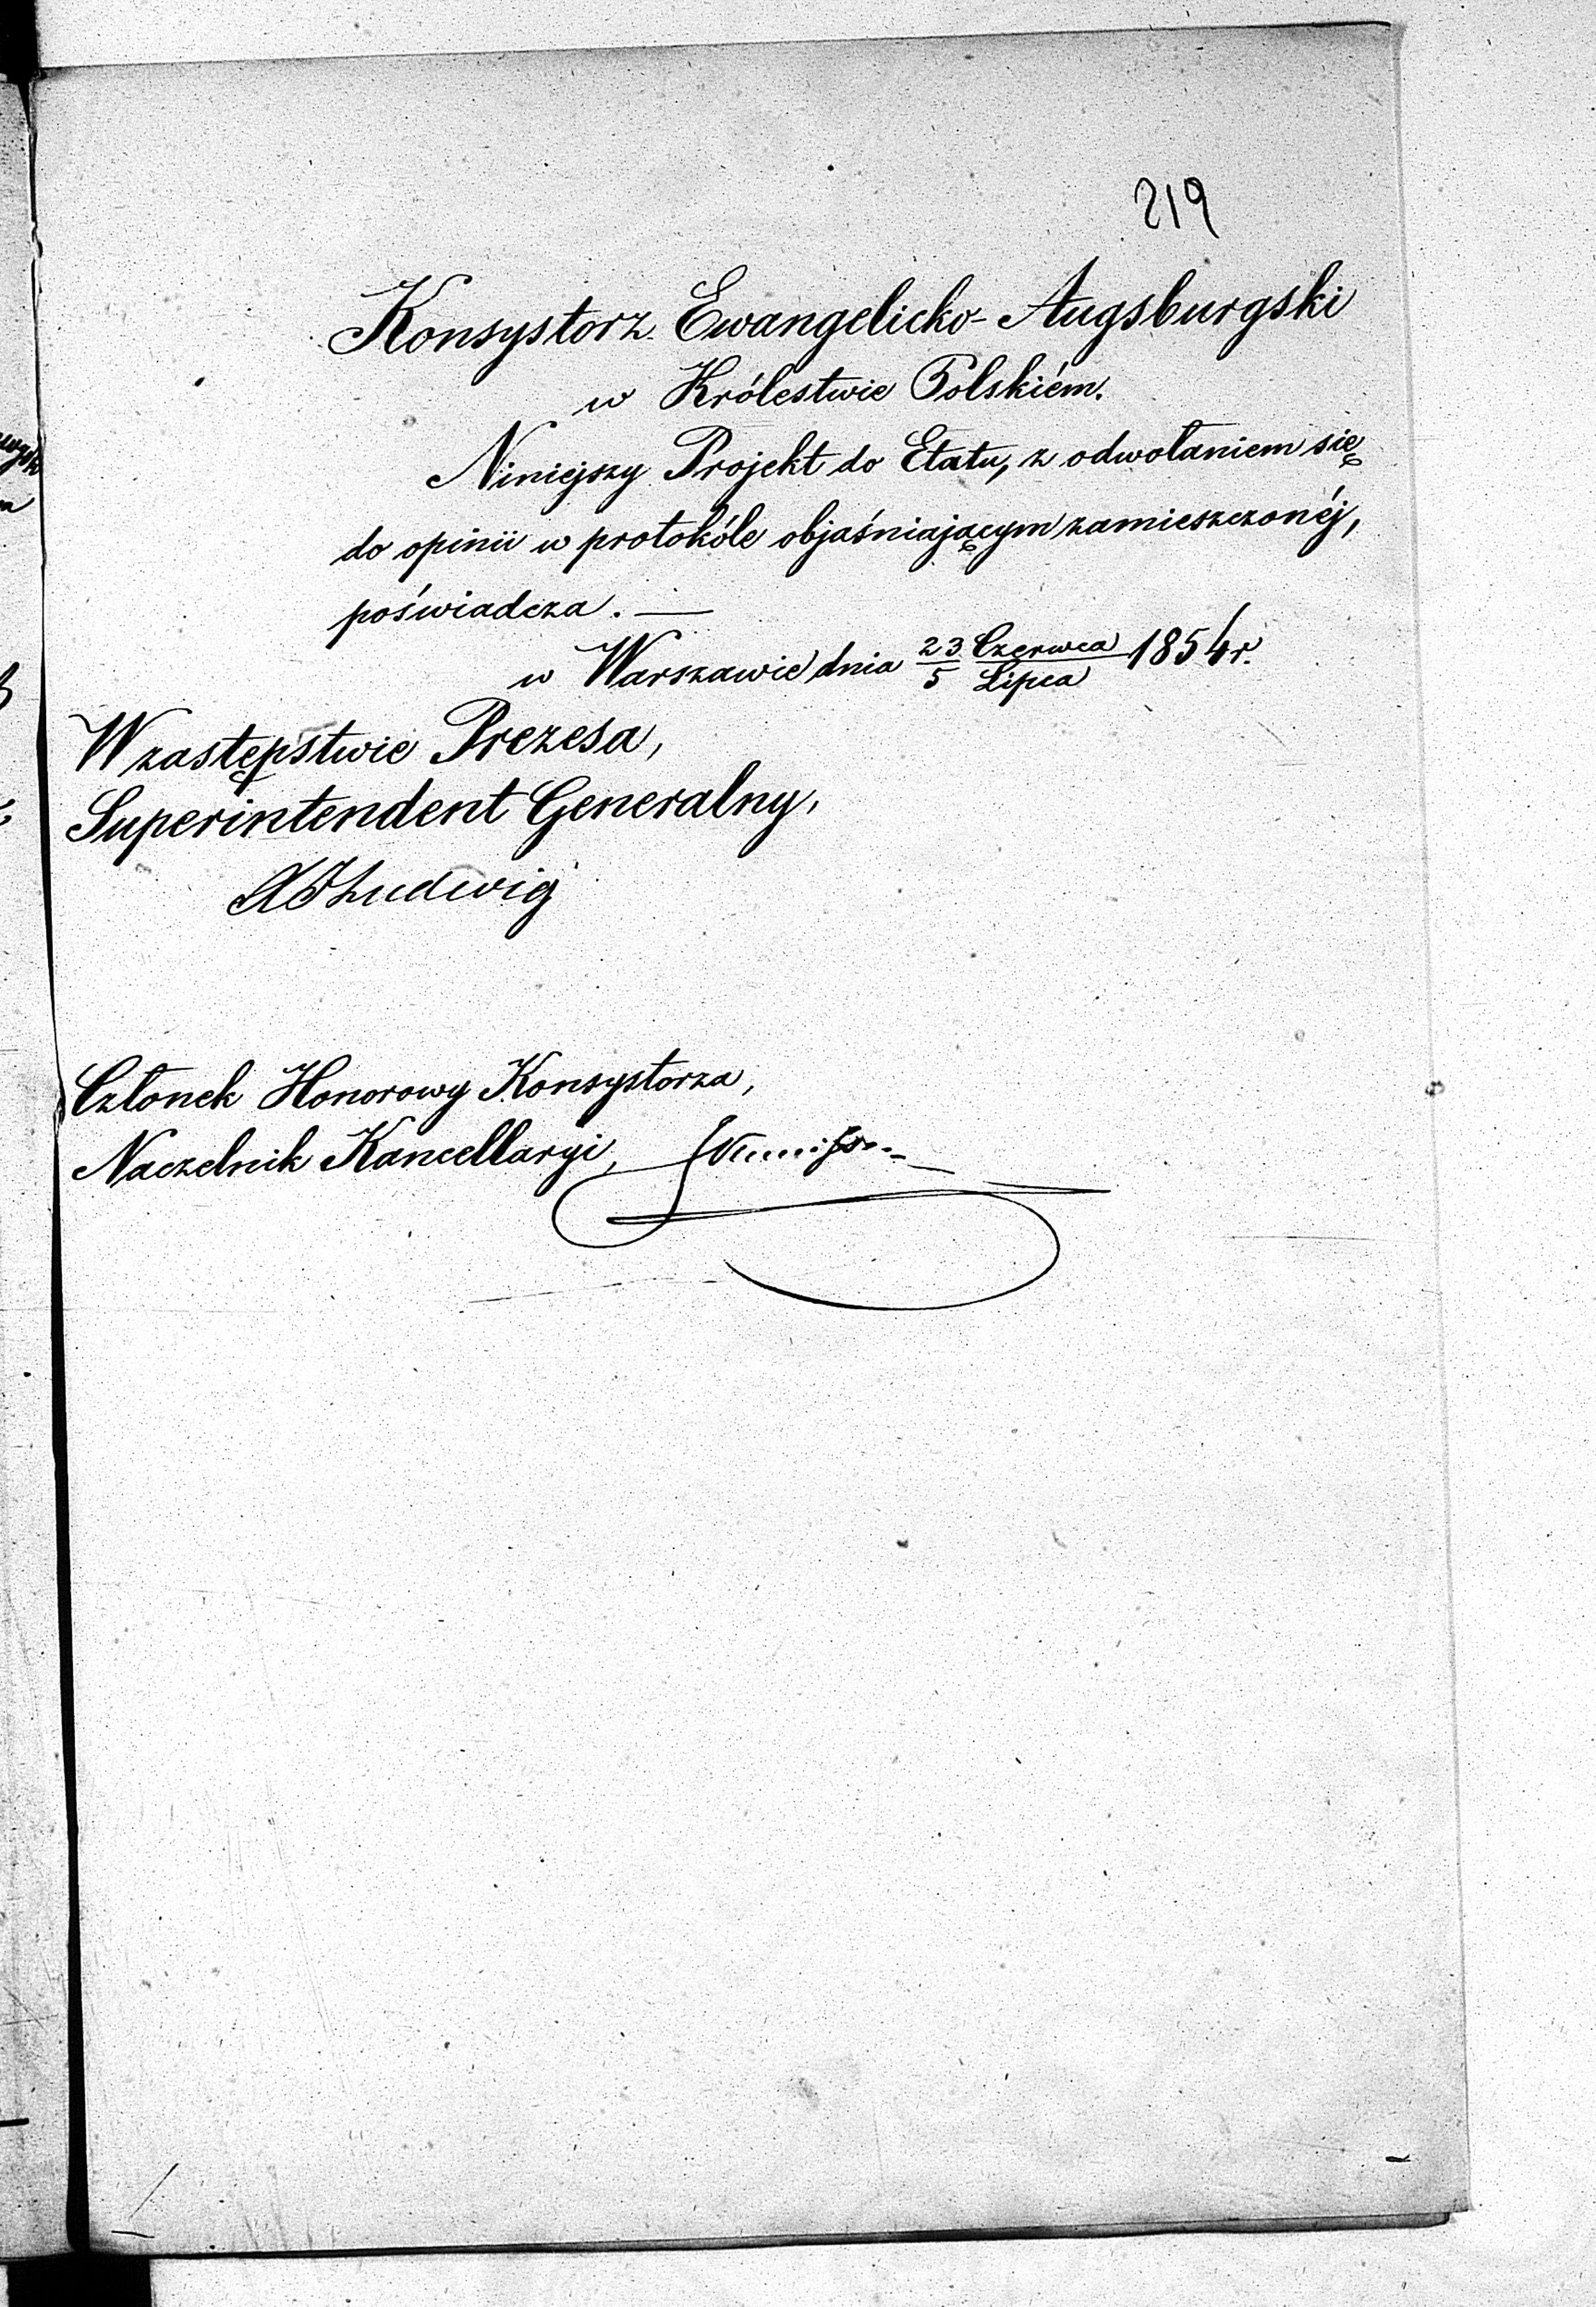 219
Konsystorz Ewangelicko-Augsburgski
w Królestwie Polskiém.
Niniejszy Projekt do Etatu, z odwołaniem się
do opinii w protokóle objaśniającym zamieszczonéj,
poświadcza. —
w Warszawie dnia 23/5 Czerwca/Lipca 1854 r.
W zastępstwie Prezesa,
Superintendent Generalny,
Ludwig
Członek Honorowy Konsystorza,
Naczelnik Kancellaryi,